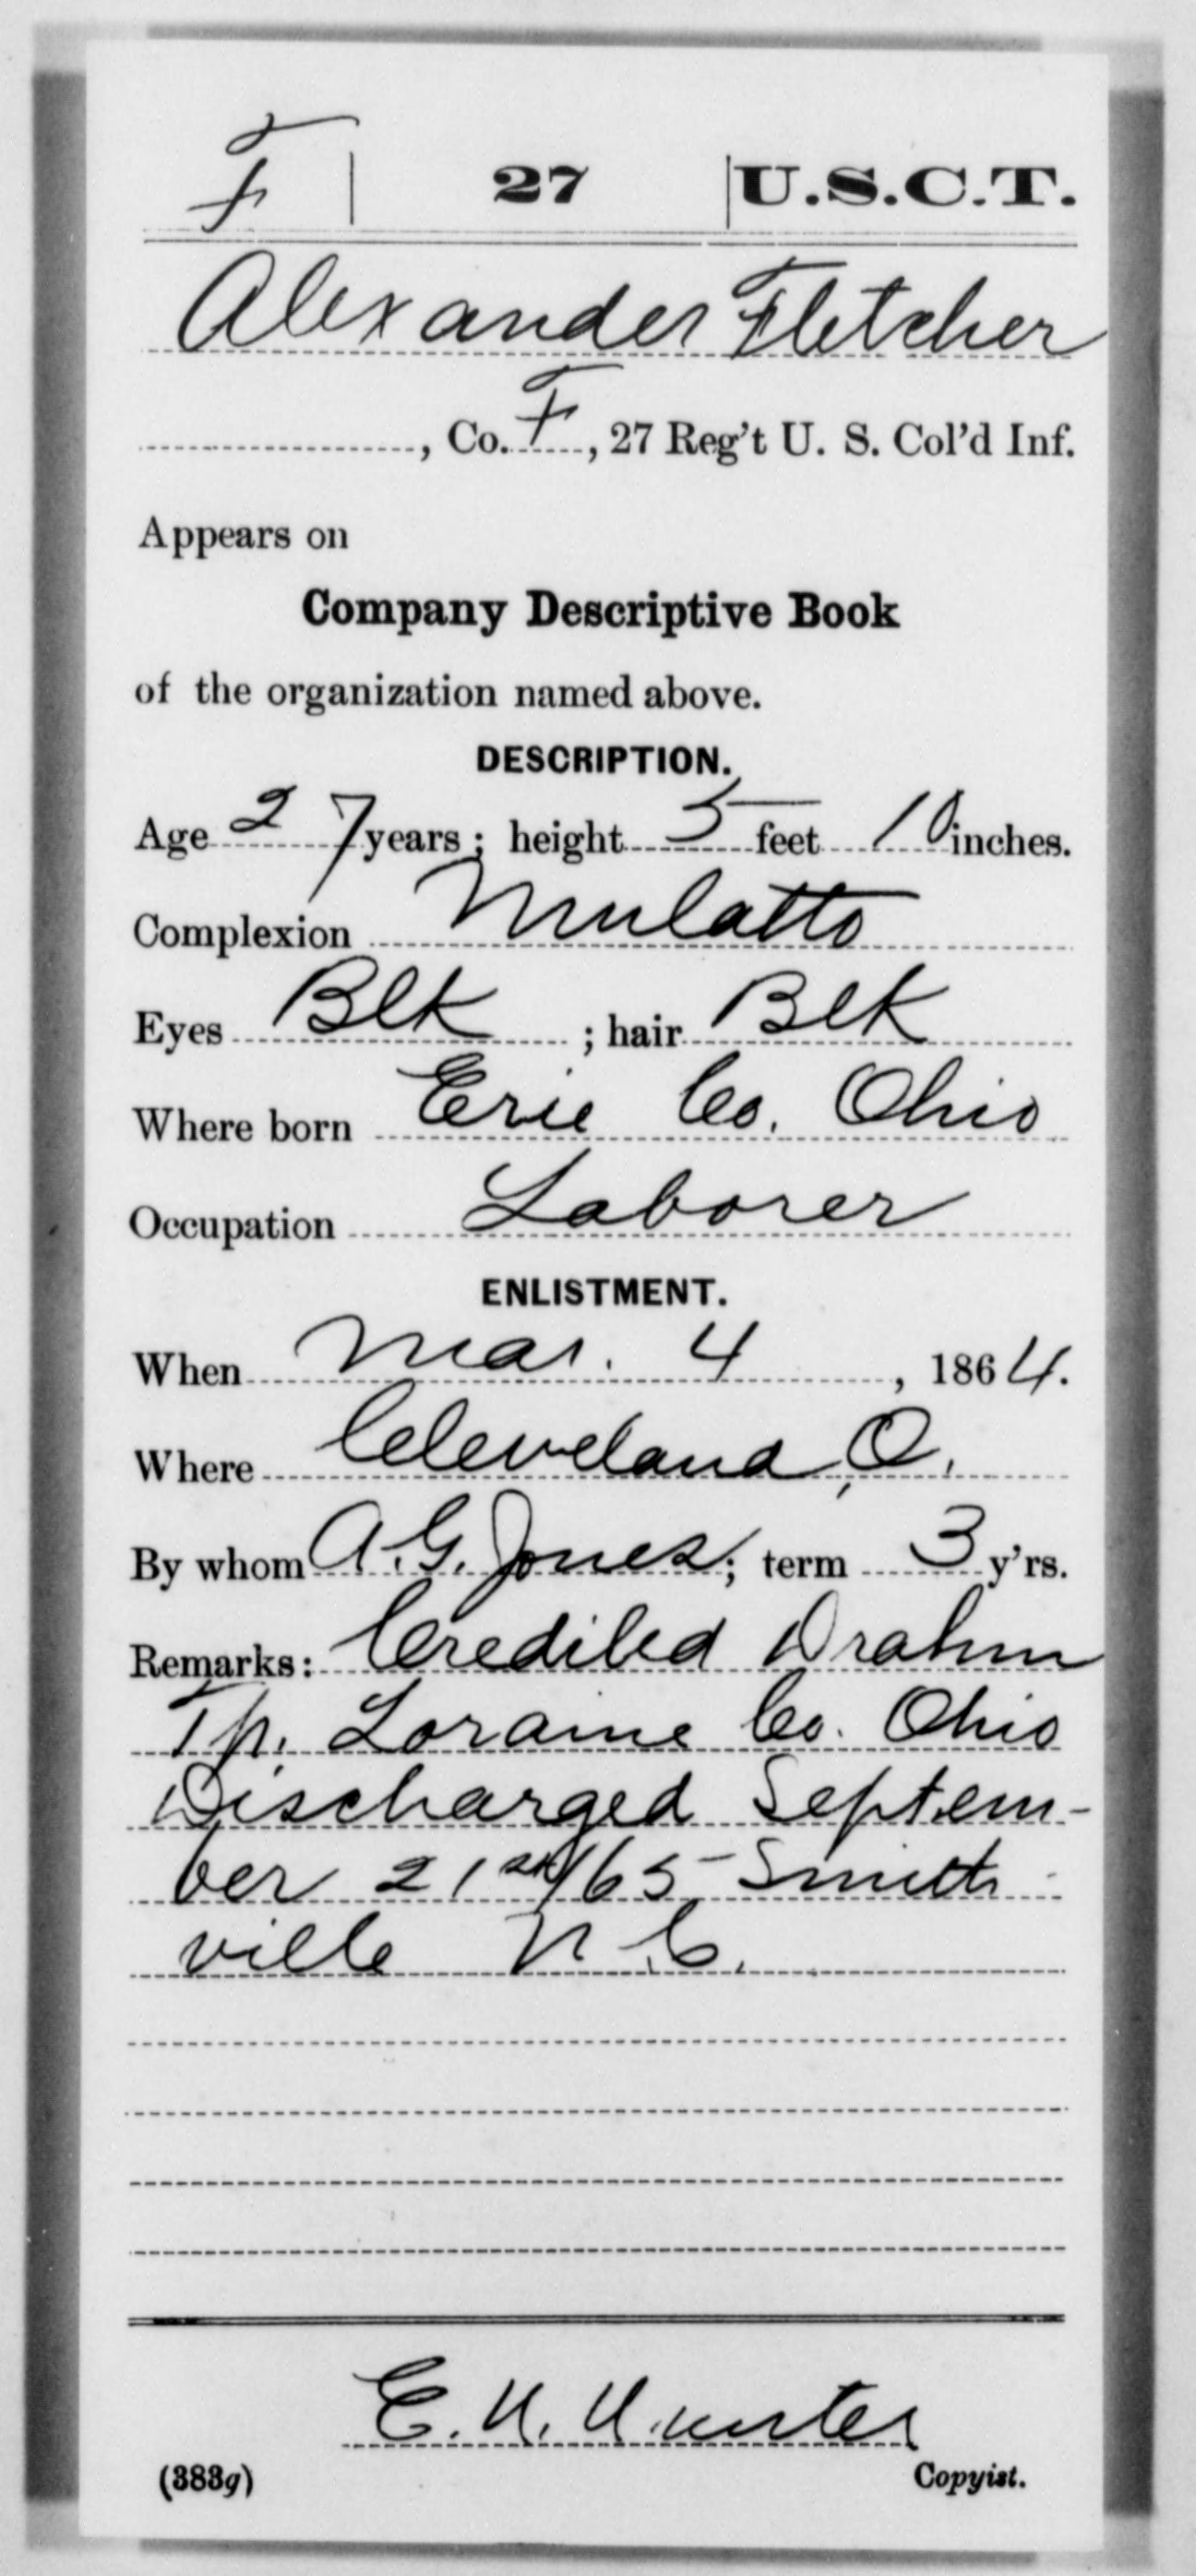 F | 27 | U.S.C.T.
Alexander Fletcher
, Co. F, 27 Reg't U. S. Col'd Inf.
Appears on
Company Descriptive Book
of the organization named above.
DESCRIPTION.
Age 27 years; height 5 feet 10 inches.
Complexion Mulatto
Eyes Blk ; hair Blk
Where born Erie Co. Ohio
Occupation Laborer
ENLISTMENT.
When Mar. 4, 1864.
Where Cleveland, O.
By whom A. G. Jones; term 3 y'rs.
Remarks: Credited
Tp. Loraine Co. Ohio
Discharged Septem-
ber 21st/65 Smith
ville N. C.
E.
(383g) Copyist.